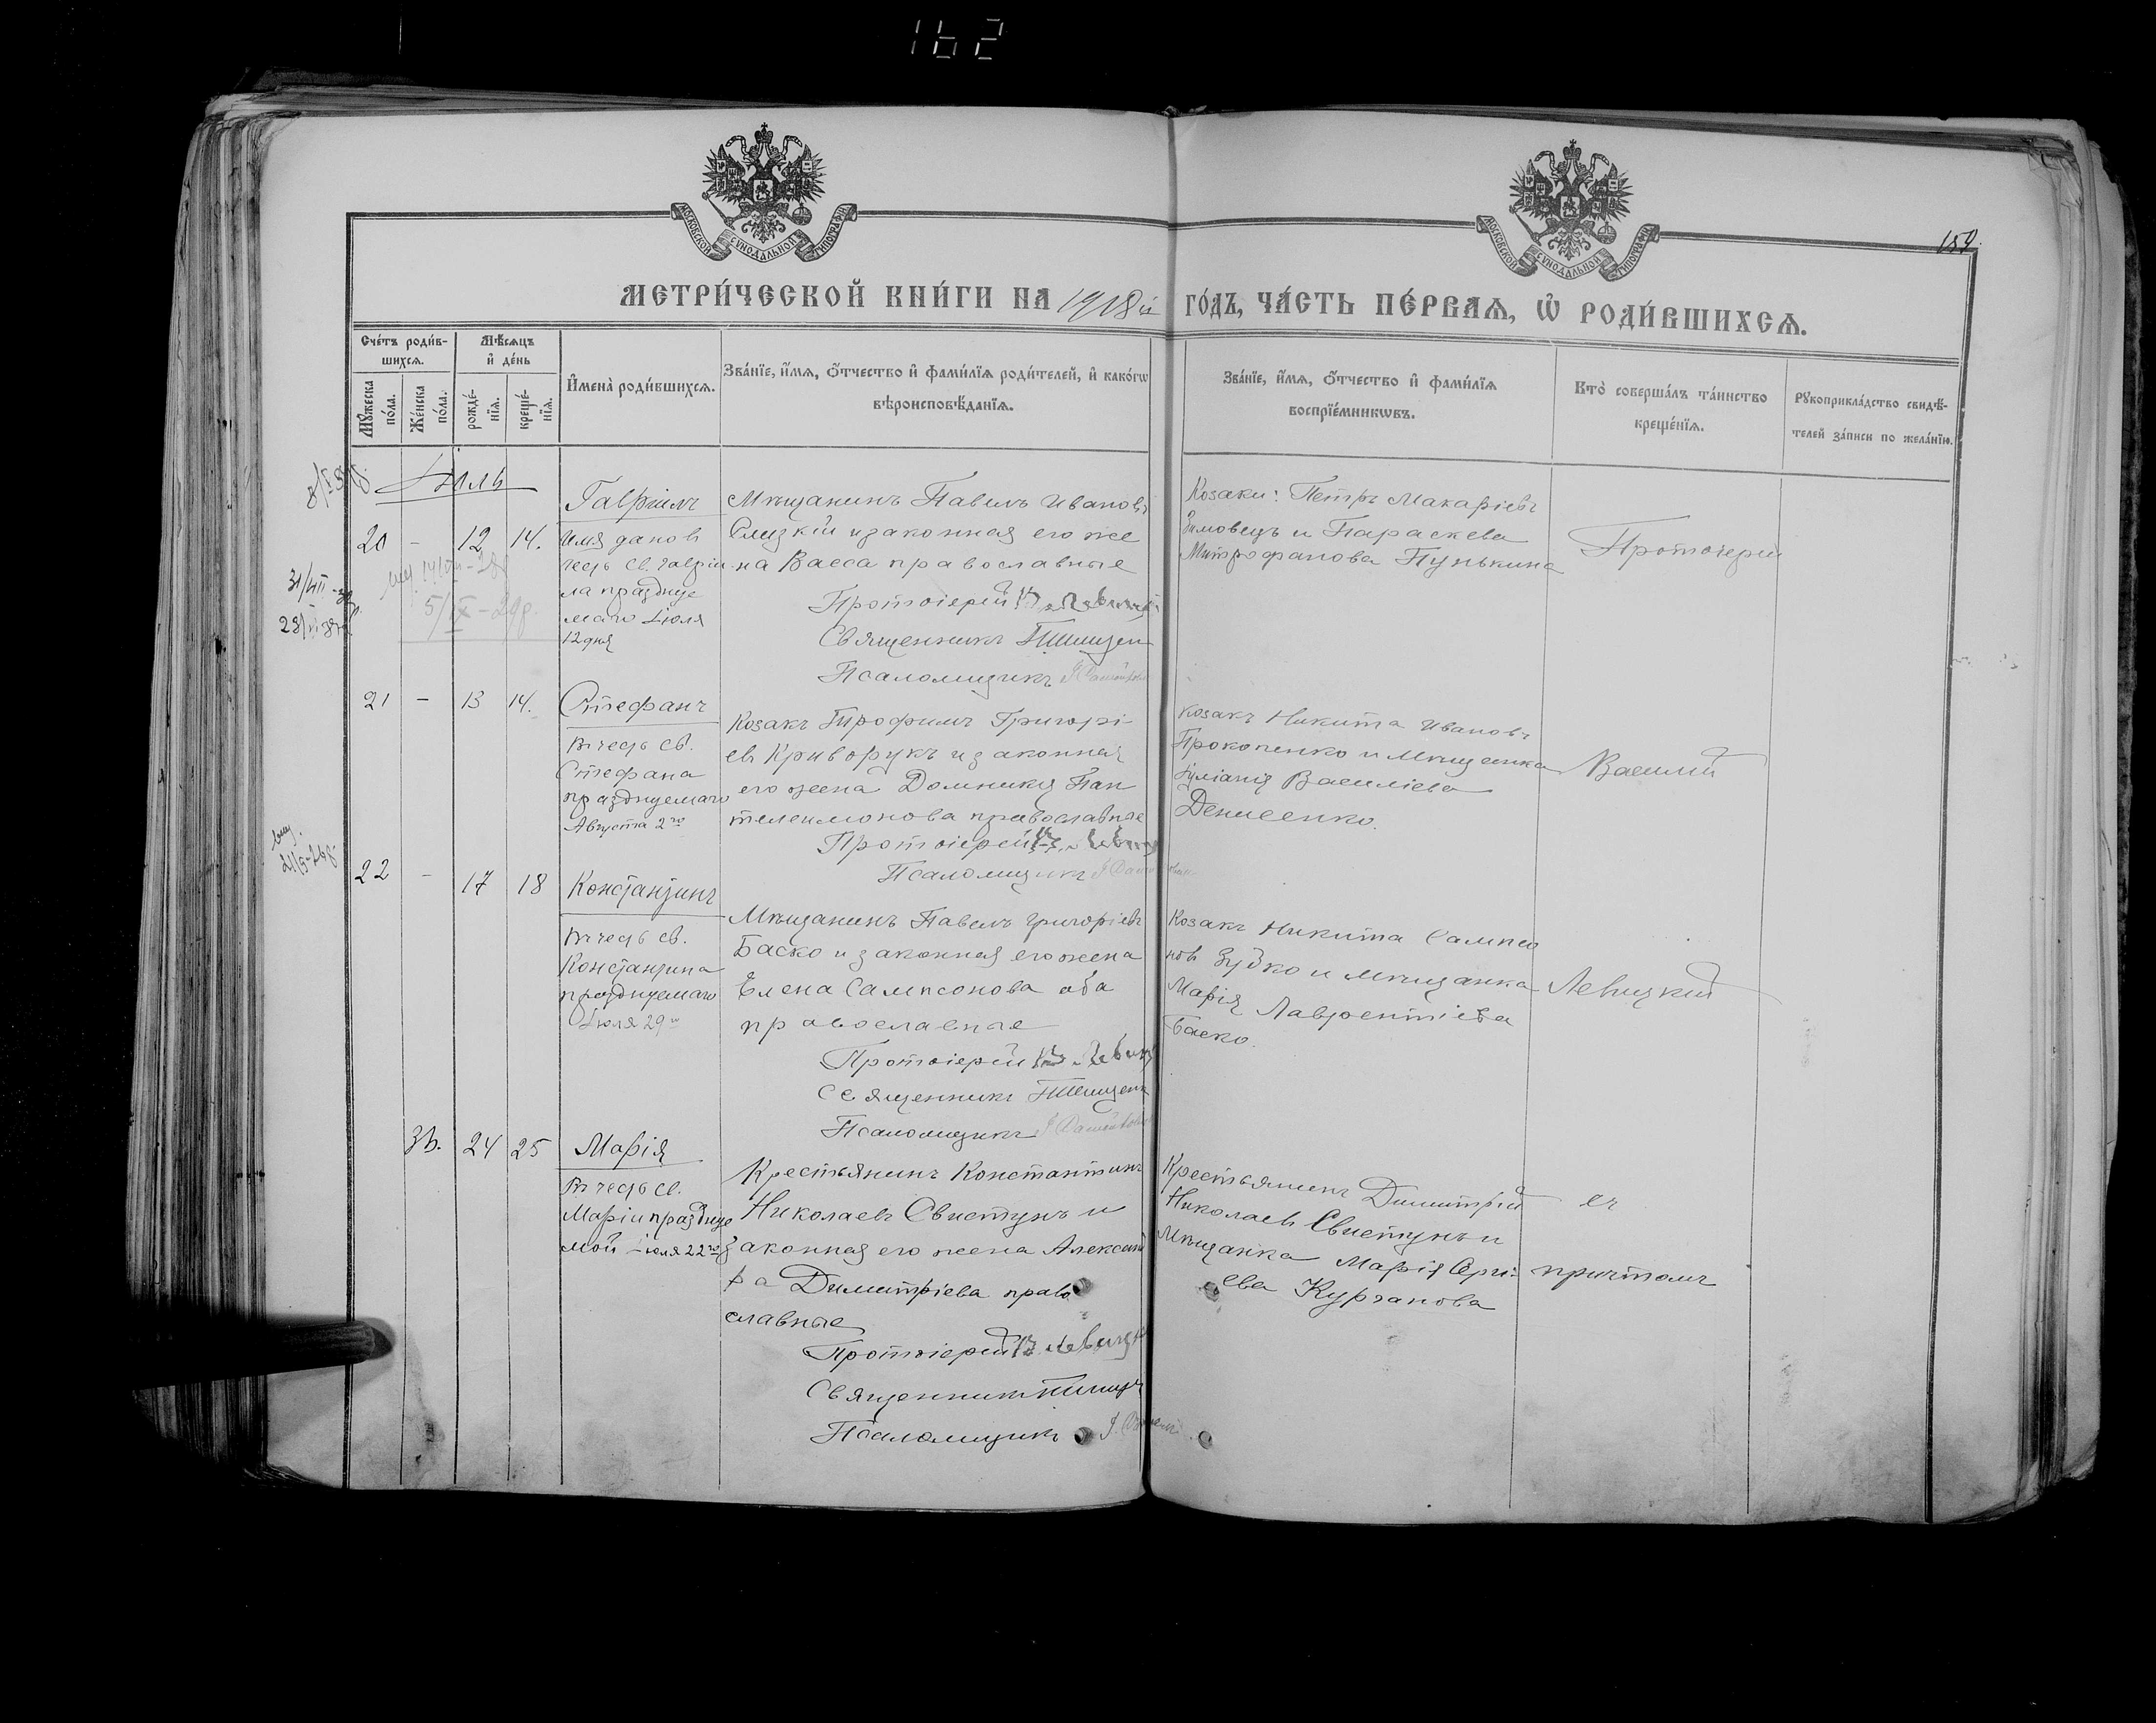 162
МОСКОВСКОЙ СѴНОДАЛЬНОЙ ТИПОГРАФІИ
МОСКОВСКОЙ СѴНОДАЛЬНОЙ ТИПОГРАФІИ
159.
МЕТРИ́ЧЕСКОЙ КНИ́ГИ НА 1918й ГО́ДЪ, ЧА́СТЬ ПЕ́РВАѦ, Ѡ РОДИ́ВШИХСѦ.
Сче́тъ роди́в-
шихсѧ.
Мꙋ́жеска
по́ла.
Же́нска
по́ла.
Мѣ́сѧцъ
и҆ де́нь
рожде́-
нїѧ.
креще́-
нїѧ.
И҆мена̀ роди́вшихсѧ.
Зва́нїе, и҆́мѧ, ѻ҆́тчество и҆ фами́лїѧ роди́телей, и҆ како́гѡ
вѣроисповѣ́данїѧ.
Зва́нїе, и҆́мѧ, ѻ҆́тчество и҆ фами́лїѧ
воспрїе́мникѡвъ.
Кто̀ соверша́лъ та́инство
креще́нїѧ.
Рꙋкоприкла́дство свидѣ́-
телей за́писи по жела́нїю.
Іюль
20 - 12 14.
Гавріилъ
Имя дано въ
честь св. Гавріи
ла празднуе
маго Іюля
12 дня
Мѣщанинъ Павелъ Ивановъ
Слизкій и законная его же
на Васса православные
Протоіерей В. Левицкій
Священникъ
Псаломщикъ
Козаки: Петръ Макаріевъ
Зимовецъ и Параскева
Митрофанова Пунькина
Протоіерей
5/IX-29г.
21 - 13 14.
Стефанъ
Въ честь св.
Стефана
празднуемаго
Августа 2го
Козакъ Трофимъ Григорі
евъ Криворукъ и законная
его жена Домникія Пан
телеимонова православные
Протоіерей В. Левиц
Псаломщикъ
Козакъ Никита Ивановъ
Прокопенко и Мѣщанка
Іуліанія Василіева
Денисенко.
Василій
22 - 17 18
Константинъ
Въ честь св.
Константина
празднуемаго
Іюля 29го
Мѣщанинъ Павелъ Григоріевъ
Баско и законная его жена
Елена Сампсонова оба
православные
Протоіерей В. Левиц
Священникъ
Псаломщикъ
Козакъ Никита Сампсо
новъ Зубко и мѣщанка
Марія Лаврентіева
Баско.
Левицкій
36. 24 25
Марія
Въ честь св.
Маріи празднуе
мой Іюля 22го
Крестьянинъ Константинъ
Николаевъ Свистунъ и
законная его жена Александ
ра Димитріева право
славные
Протоіерей В. Левицк
Священникъ
Псаломщикъ
Крестьянинъ Димитрій
Николаевъ Свистунъ и
Мѣщанка Марія Сергі
ева Курганова
съ
причтомъ